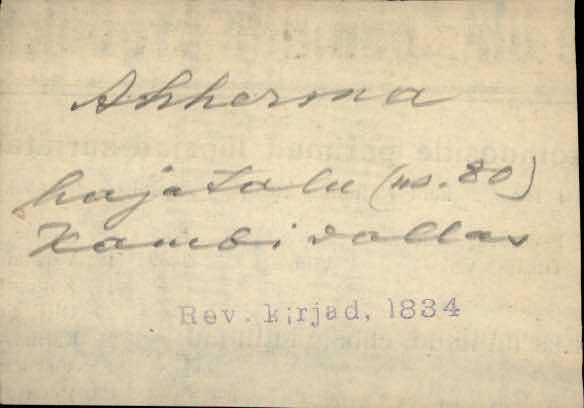 Akkerma
hajatalu (ns. 80)
Kambi vallas
Rev. kirjad, 1834